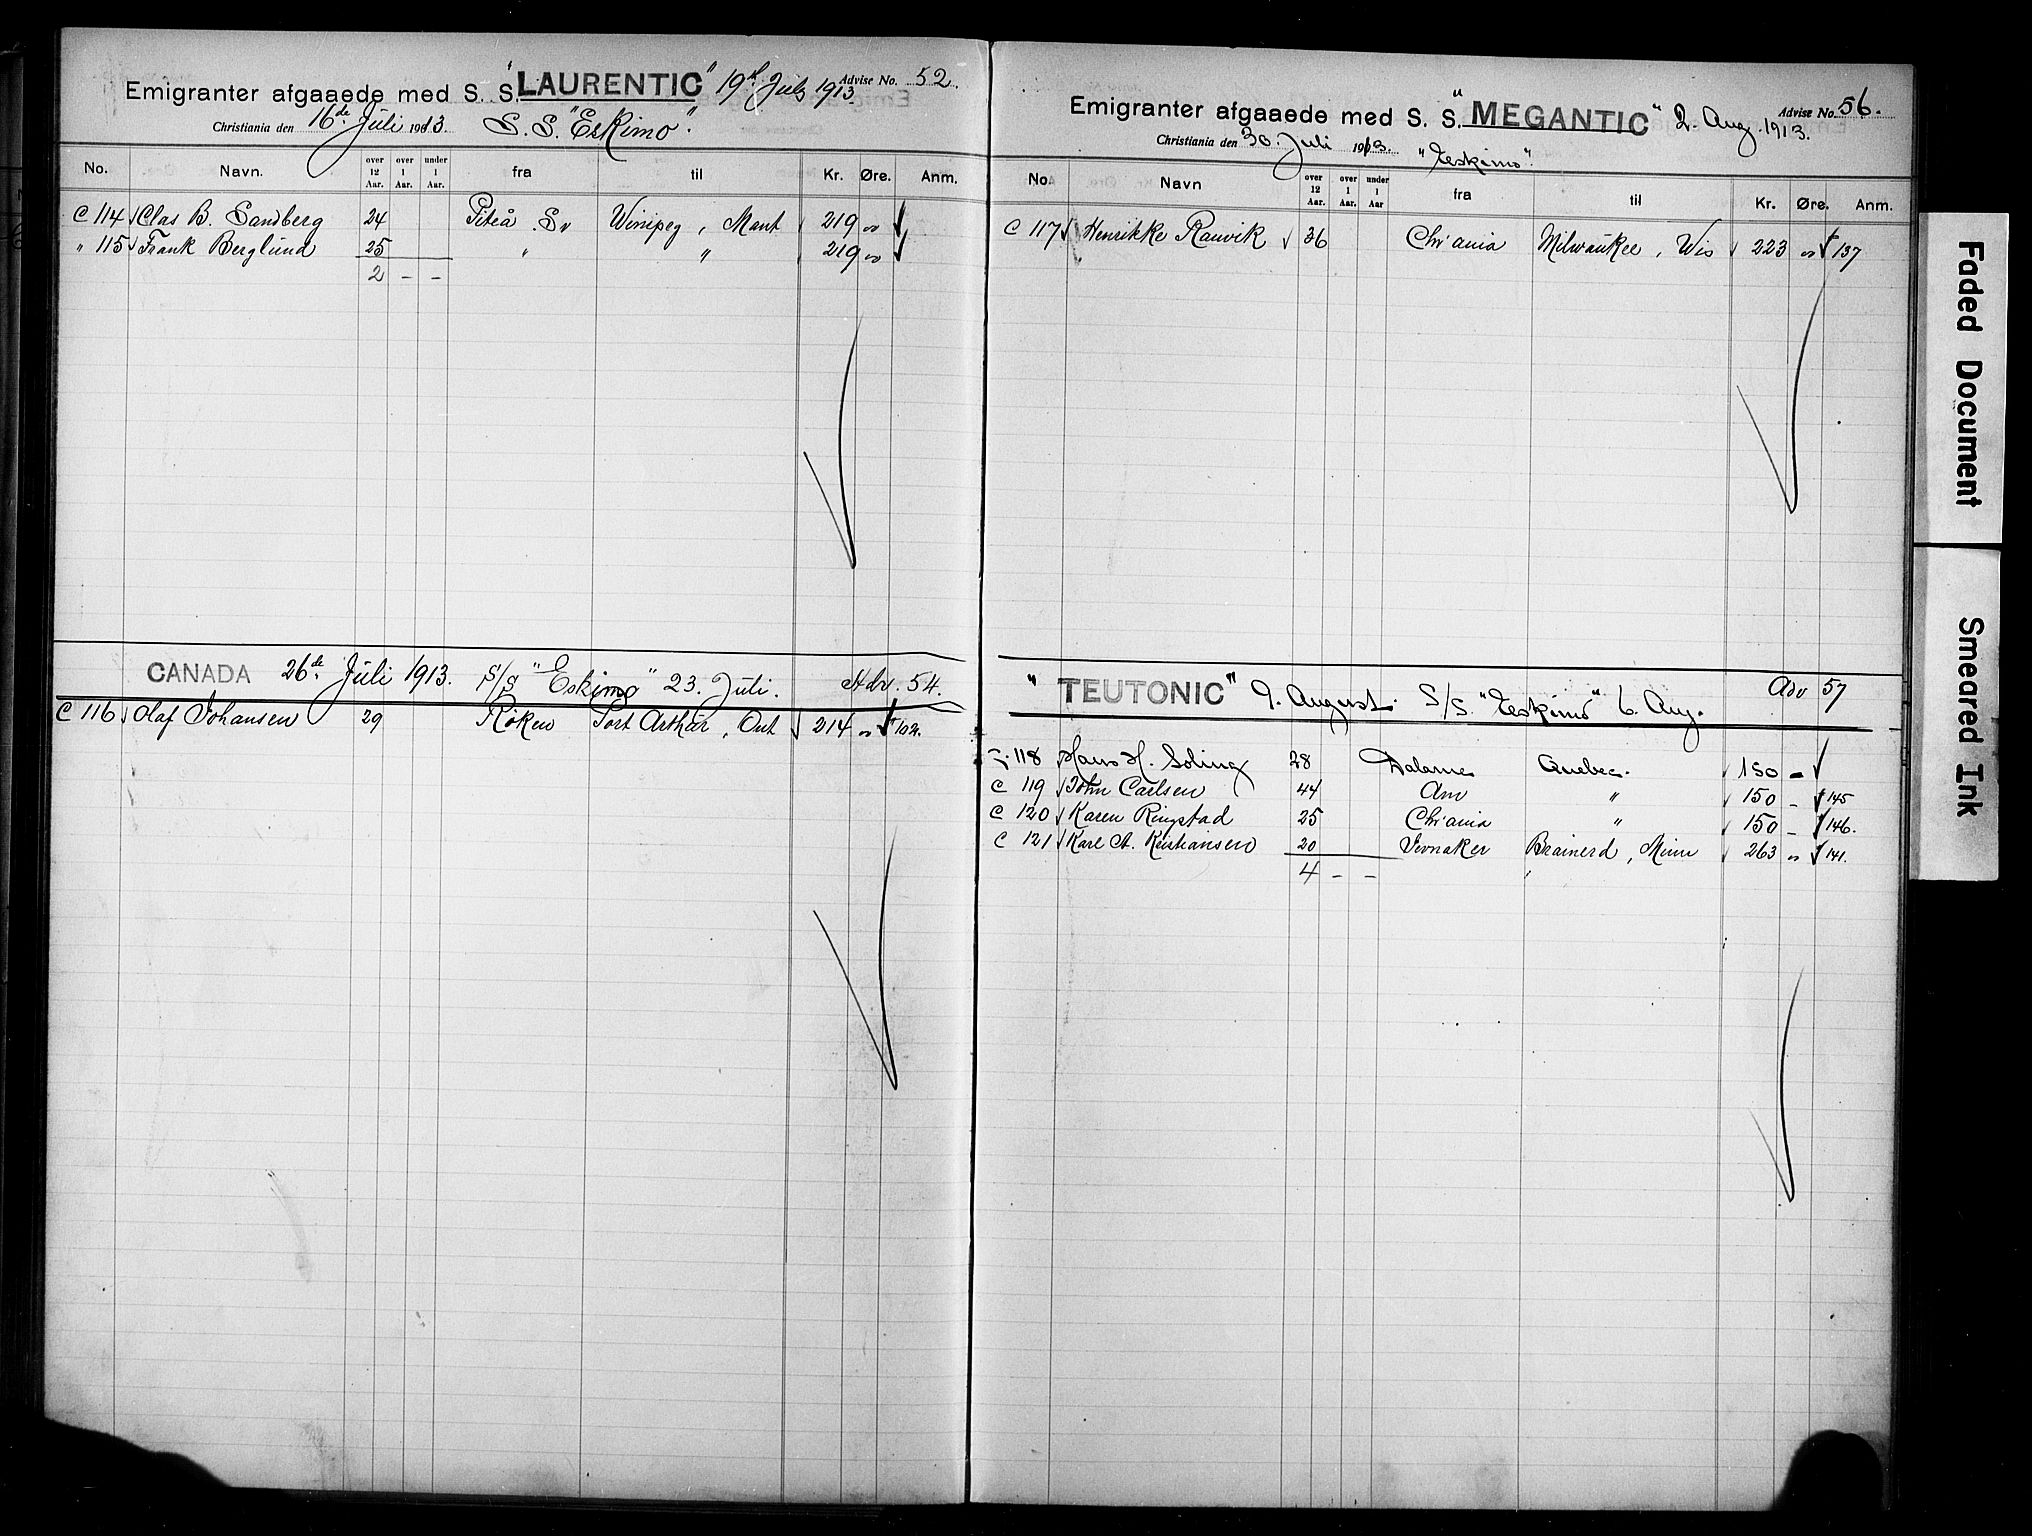 Emigranter afgaaede med S. S. "LAURENTIC" 19d July 1913. Advise No. 52
Christiania den 16de Juli 1913. S. S. "Eskimo".
No. Navn. over 12 Aar. over 1 Aar. under 1 Aar. fra til Kr. Øre. Anm.
C 114 Clas B. Sandberg 24 Piteå Sv Winipeg, Mant 219 00
" 115 Frank Berglund 25 " " 219 00
2 - -
CANADA 26de Juli 1913. S/S "Eskimo" 23. Juli. Adv. 54.
C 116 Olaf Johansen 29 Röken Port Arthur, Ont 214 00 102.
Emigranter afgaaede med S. S. "MEGANTIC" 2. Aug. 1913. Advise No. 56.
Christiania den 30. Juli 1913. "Eskimo".
No. Navn over 12 Aar. over 1 Aar. under 1 Aar fra til Kr. Øre. Anm.
C 117 Henrikke Ranvik 36 Chr'ania Milwaukee, Wis 223 00 137
"TEUTONIC" 9. August. S/S. "Eskimo" 6. Aug. Adv 57
118 Hans H. Soling 28 Dalarne Quebec. 150 -
C 119 John Carlsen 44 Am " 150 - 145
C 120 Karen Ringstad 25 Chr'ania " 150 - 146.
C 121 Karl A. Kristiansen 20 Jevnaker Brainerd, Minn 263 00 141.
4 - -
Faded Document
Smeared Ink